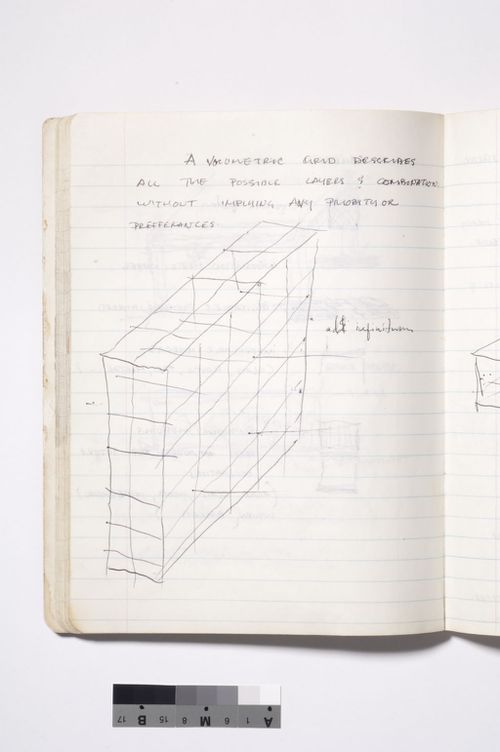 A VOLUMETRIC GRID DESCRIBES
ALL THE POSSIBLE LAYERS & COMBINATION
WITHOUT IMPLYING ANY PRIORITY OR
PREFERANCES
add infinitum
17 B 15 8 M 6 1 A